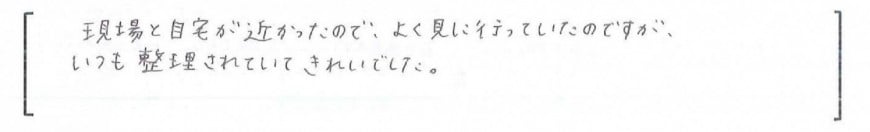 現場と自宅が近かったので、よく見に行っていたのですが、
いつも整理されていてきれいでした。